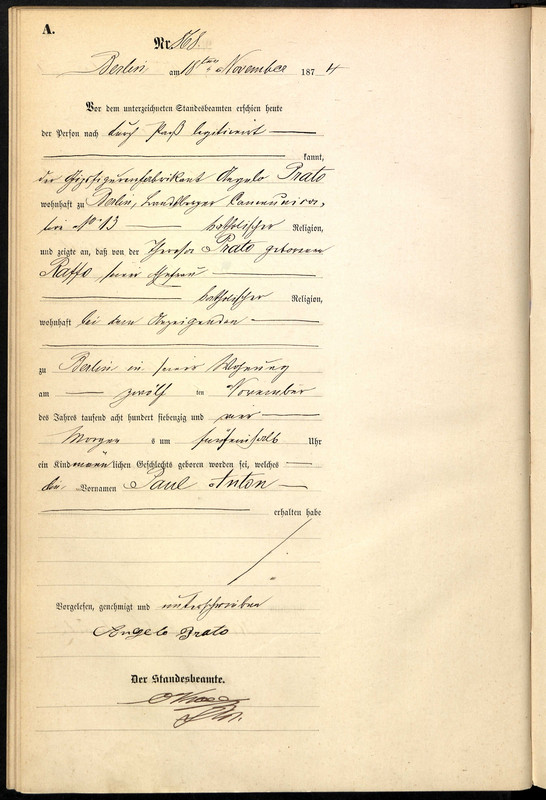 A.
Nr. 868.
Berlin am 18ten November 1874
Vor dem unterzeichneten Standesbeamten erschien heute
der Person nach durch Paß legitimirt
kannt,
der Gipsfigurenfabrikant Angelo Prato
wohnhaft zu Berlin, Landsberger Communica,
tion No 13 katholischer Religion,
und zeigte an, daß von der Theresa Prato geborenen
Raffo seiner Ehefrau
katholischer Religion,
wohnhaft bei dem Anzeigenden
zu Berlin in seiner Wohnung
am zwölf ten November
des Jahres tausend acht hundert siebenzig und vier
Morgens um fünfeinhalb Uhr
ein Kind männlichen Geschlechts geboren worden sei, welches
die Vornamen Paul Anton
erhalten habe
Vorgelesen, genehmigt und unterschrieben
Angelo Prato
Der Standesbeamte.